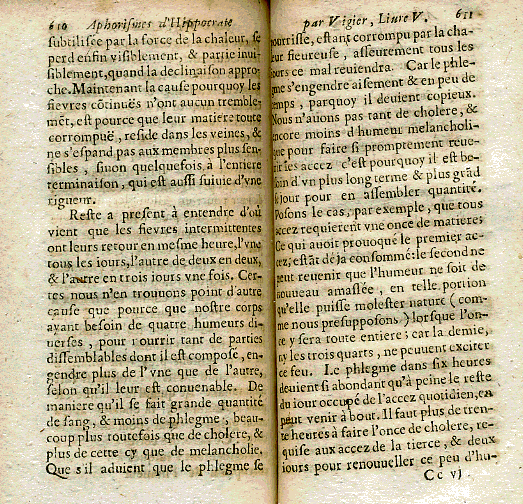 610 Aphorismes d'Hippocrate
subtilisée par la force de la chaleur, se
perd enfin visiblement, & partie inui-
siblement, quand la declinaison appro-
che. Maintenant la cause pourquoy les
fievres cõtinuës n'ont aucun tremble-
mẽt, est pource que leur matiere toute
corrompuë, reside dans les veines, &
ne s'espand pas aux membres plus sen-
sibles, sinon quelquefois à l'entiere
terminaison, qui est aussi suiuie d'vne
rigueur.
Reste a present à entendre d'où
vient que les fievres intermittentes
ont leurs retour en mesme heure, l'vne
tous les iours, l'autre de deux en deux,
& l'autre en trois iours vne fois. Cer-
tes nous n'en trouuons point d'autre
cause que pource que nostre corps
ayant besoin de quatre humeurs di-
uerses, pour nourrir tant de parties
dissemblables dont il est compose, en-
gendre plus de l'vne que de l'autre,
selon qu'il leur est conuenable. De
maniere qu'il se fait grande quantité
de sang, & moins de phlegme, beau-
coup plus toutefois que de cholere, &
plus de cette cy que de melancholie.
Que s'il aduient que le phlegme se
par Vigier, Liure V. 611
pourrisse, estant corrompu par la cha-
leur fieureuse, asseurement tous les
iours ce mal reuiendra. Car le phle-
gme s'engendre aisement & en peu de
temps, parquoy il deuient copieux.
Nous n'auons pas tant de cholere, &
encore moins d'humeur melancholi-
que pour faire si promptement reue-
nir les accez c'est pourquoy il est be-
soin d'vn plus long terme & plus grãd
seiour pour en assembler quantité.
Posons le cas, par exemple, que tous
accez requierent vne once de matiere:
Ce qui auoit prouoqué le premier ac-
cez, estãt de-ja consommé: le second ne
peut reuenir que l'humeur ne soit de
nouueau amassée, en telle portion
qu'elle puisse molester nature (com-
me nous presupposons) lorsque l'on-
ce y sera route entiere; car la demie,
ny les trois quarts, ne peuuent exciter
ce feu. Le phlegme dans six heures
deuient si abondant qu'à peine le reste
du iour occupé de l'accez quotidien, en
peut venir à bout. Il faut plus de tren-
te heures à faire l'once de cholere, re-
quise aux accez de la tierce, & deux
iours pour renouueller ce peu d'hu-
Cc vj